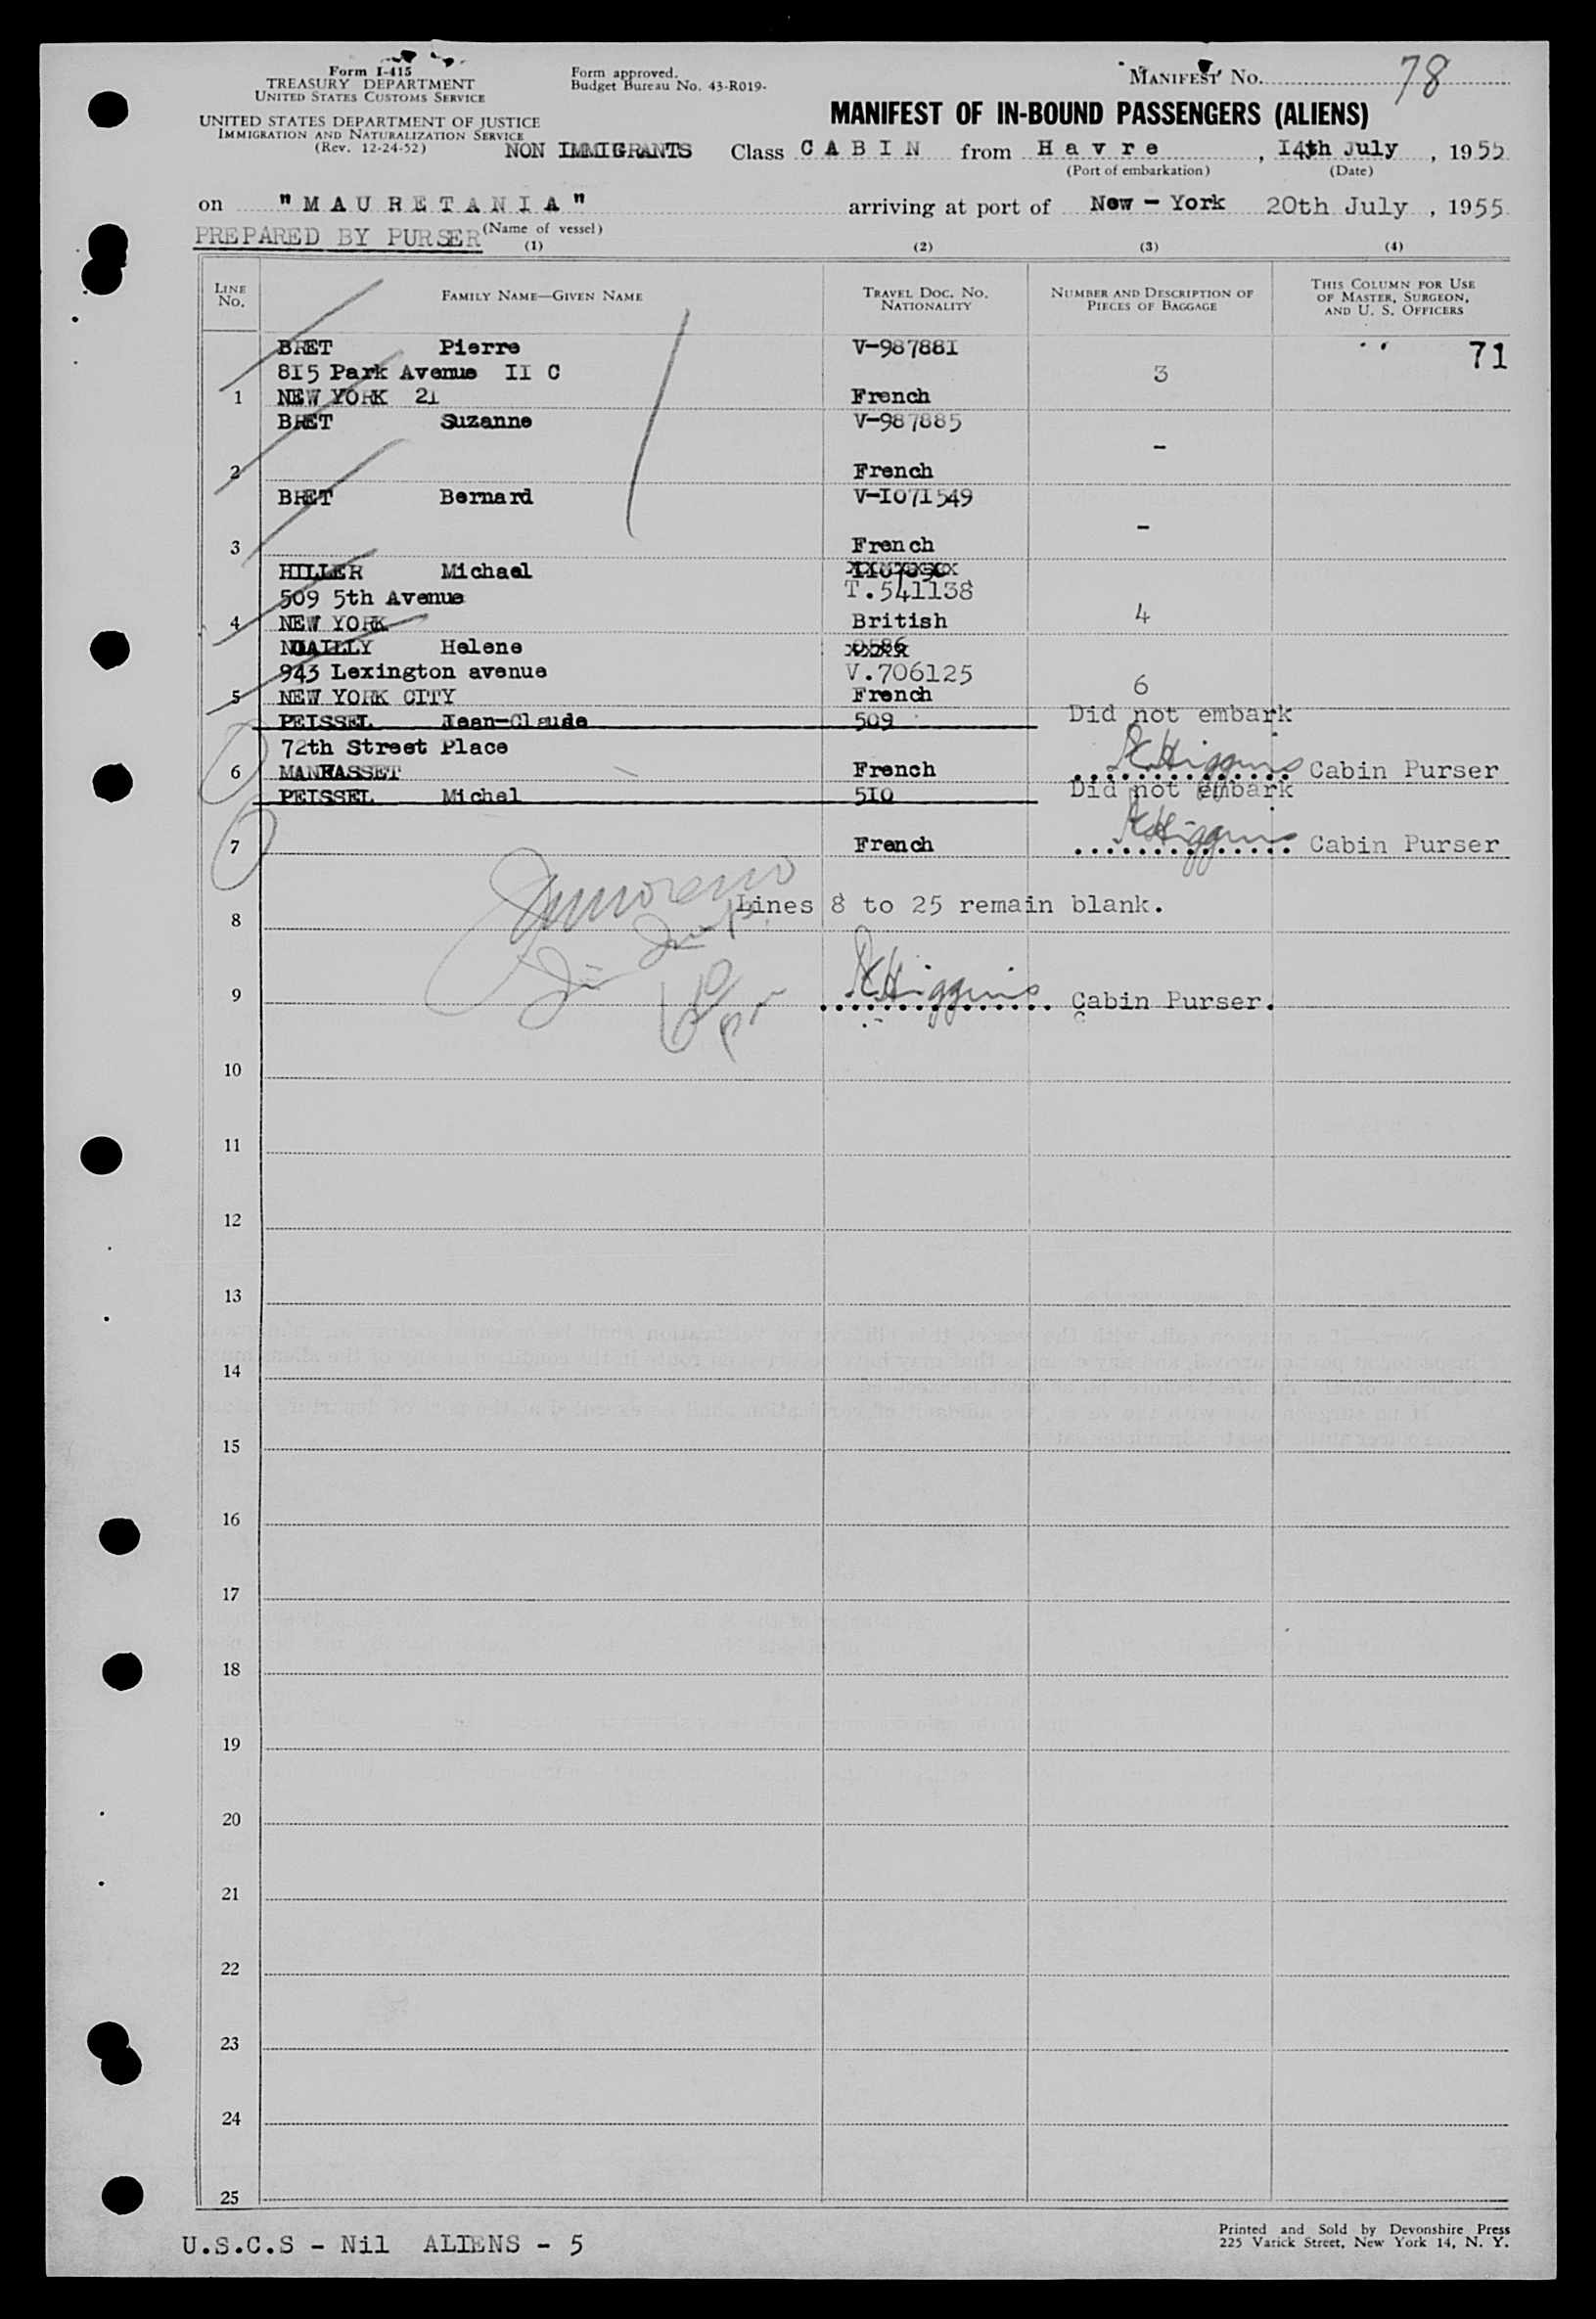 Form I-415
TREASURY DEPARTMENT
UNITED STATES CUSTOMS SERVICE
UNITED STATES DEPARTMENT OF JUSTICE
IMMIGRATION AND NATURALIZATION SERVICE
(Rev. 12-24-52)
Form approved.
Budget Bureau No. 43-R019-
MANIFEST No. 78
MANIFEST OF IN-BOUND PASSENGERS (ALIENS)
NON IMMIGRANTS Class CABIN from Havre, 14th July, 1955
(Port of embarkation) (Date)
on "MAURETANIA" arriving at port of New - York 20th July, 1955
PREPARED BY PURSER (Name of vessel)
(1) (2) (3) (4)
LINE No. FAMILY NAME—GIVEN NAME TRAVEL DOC. No. NATIONALITY NUMBER AND DESCRIPTION OF PIECES OF BAGGAGE THIS COLUMN FOR USE OF MASTER, SURGEON, AND U. S. OFFICERS
BRET Pierre V-987881 71
815 Park Avenue II C 3
1 NEW YORK 21 French
BRET Suzanne V-987885
-
2 French
BRET Bernard V-I071549
-
3 French
HILLER Michael
509 5th Avenue T.541138
4 NEW YORK British 4
NOAILLY Helene
943 Lexington avenue V.706125
5 NEW YORK CITY French 6
PEISSEL Jean-Claude 509 Did not embark
72th Street Place
6 MANHASSET French Higgins Cabin Purser
PEISSEL Michel 510 Did not embark
7 French Higgins Cabin Purser
Lines 8 to 25 remain blank.
8
Higgins
9 Cabin Purser.
10
11
12
13
14
15
16
17
18
19
20
21
22
23
24
25
U.S.C.S - Nil ALIENS - 5
Printed and Sold by Devonshire Press
225 Varick Street, New York 14, N. Y.